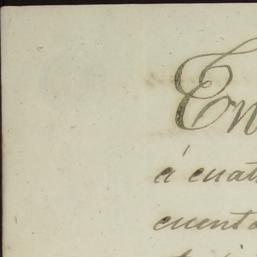 En
á cuat
cuent